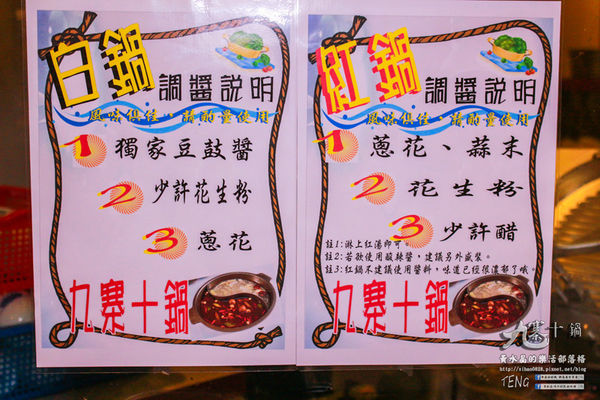 白鍋 調醬說明
風味俱佳、請酌量使用
1 獨家豆鼓醬
2 少許花生粉
3 蔥花
九寨十鍋
紅鍋 調醬說明
風味俱佳、請酌量使用
1 蔥花、蒜末
2 花生粉
3 少許醋
註1:淋上紅湯即可。
註2:若欲使用酸辣醬,建議另外盛裝。
註3:紅鍋不建議使用醬料,味道已經很濃郁了哦。
九寨十鍋
九寨十鍋
黃水晶的樂活部落格
http://sihao0828.pixnet.net/blog
TENG